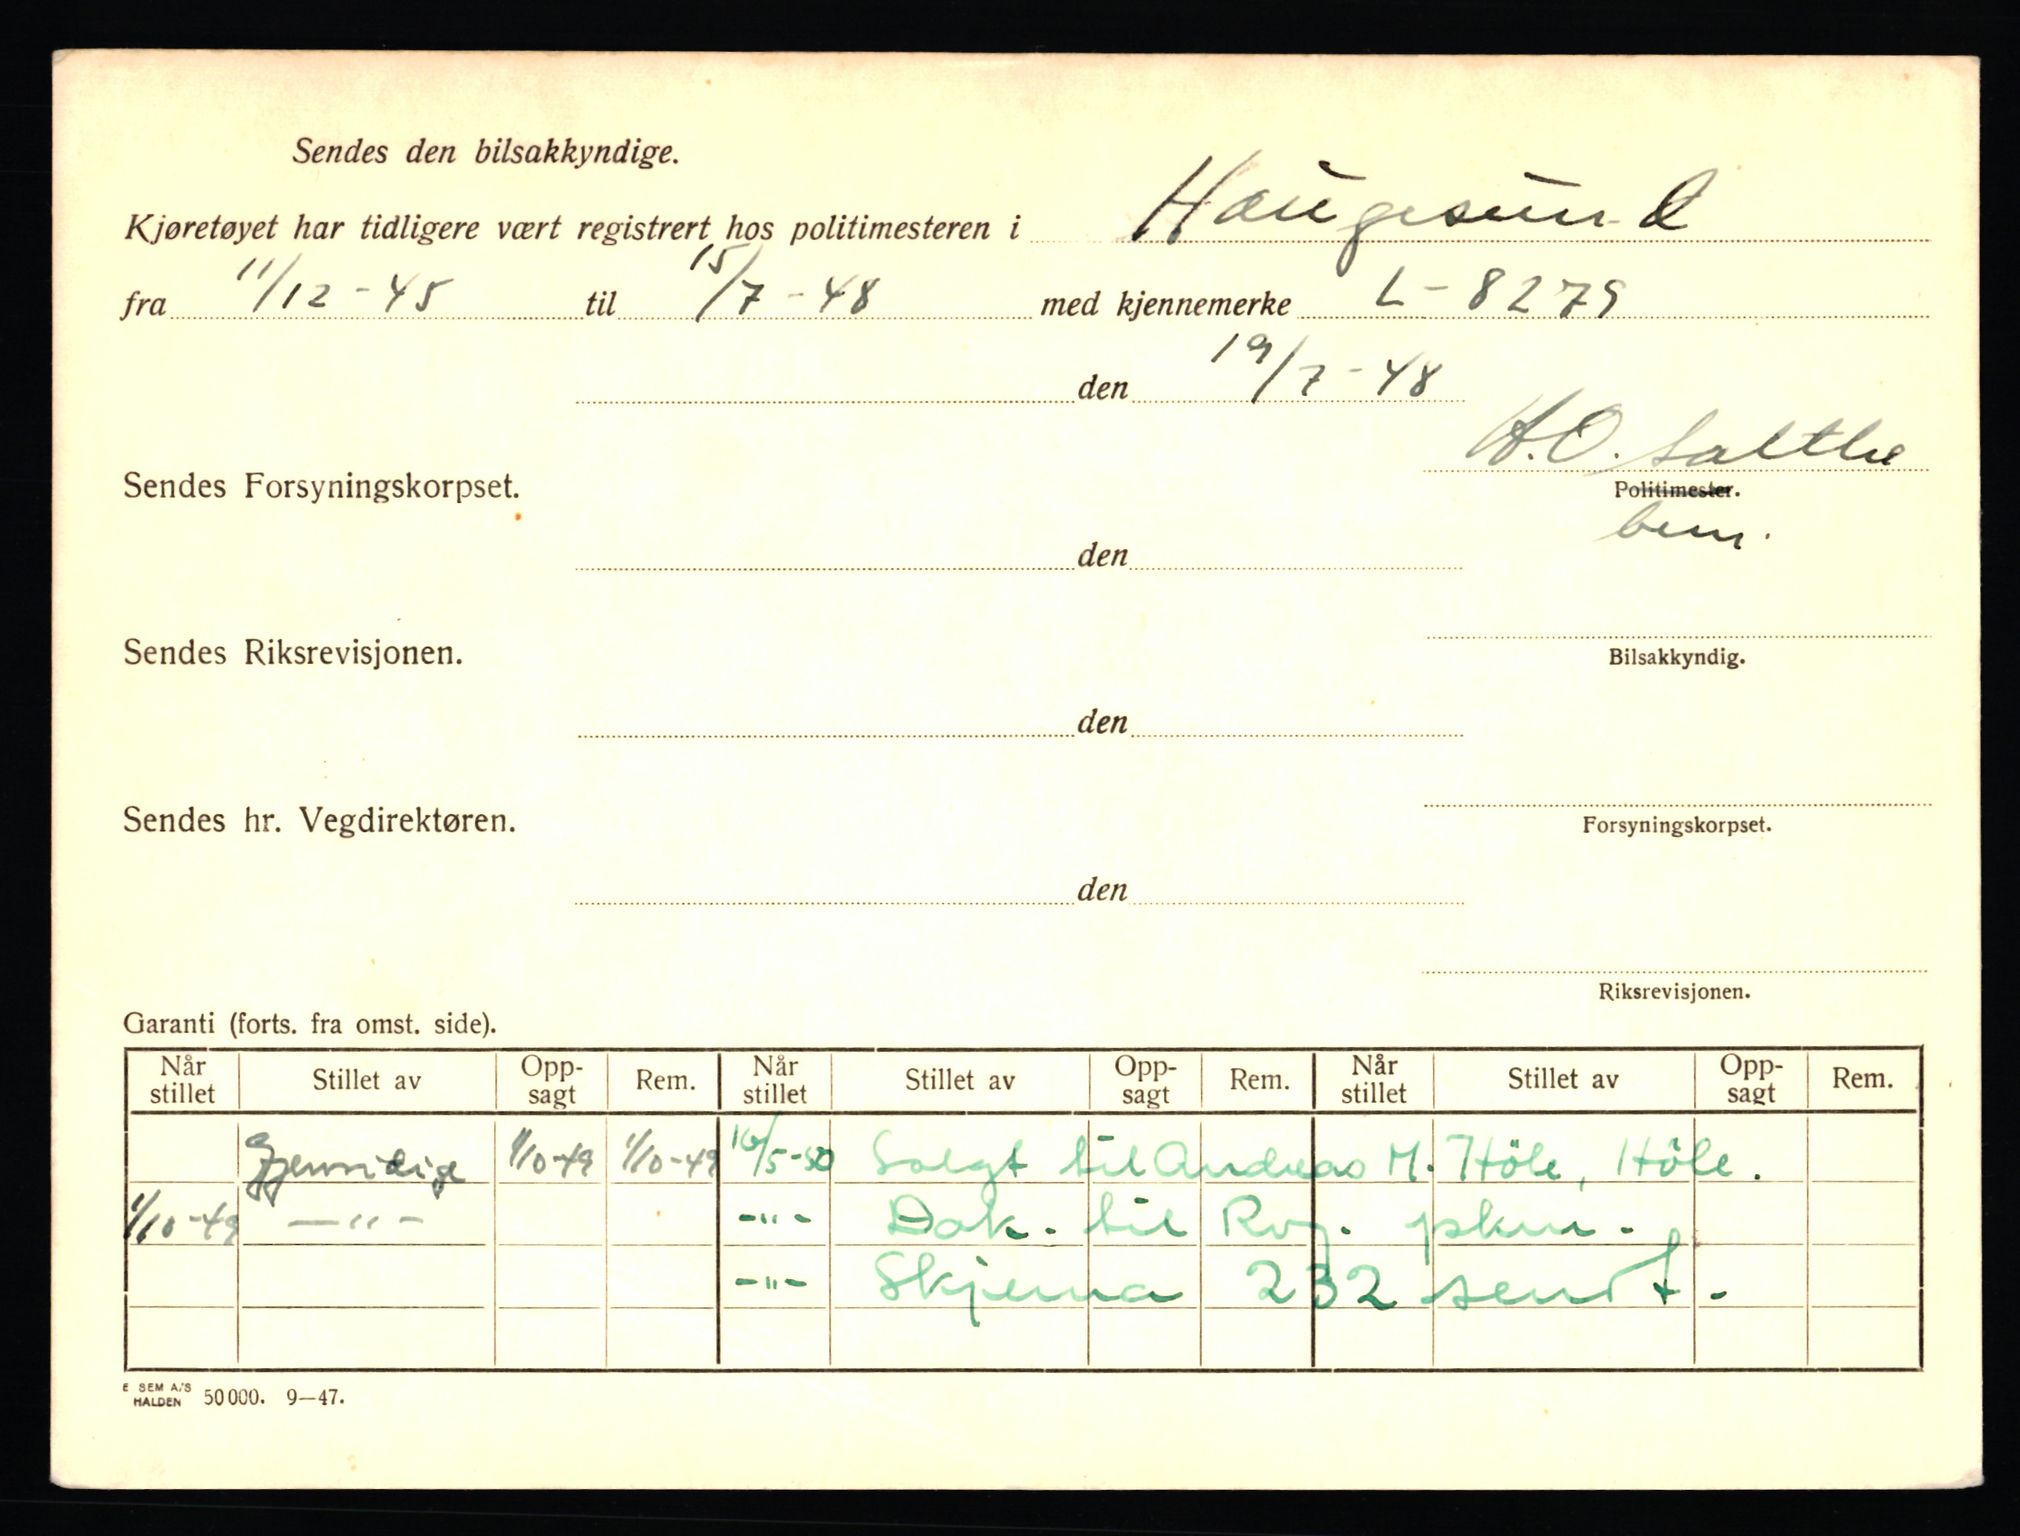 Sendes den bilsakkyndige.
Kjøretøyet har tidligere vært registrert hos politimesteren i Haugesund
fra 11/12-45 til 15/7-48 med kjennemerke L-8279
den 19/7-48
H.O. Salthe
Sendes Forsyningskorpset. Politimester.
bem.
den
Sendes Riksrevisjonen. Bilsakkyndig.
den
Sendes hr. Vegdirektøren. Forsyningskorpset.
den
Riksrevisjonen.
Garanti (forts. fra omst. side).
Når stillet Stillet av Opp-sagt Rem. Når stillet Stillet av Opp-sagt Rem. Når stillet Stillet av Opp-sagt Rem.
Gjensidige 1/10-49 1/10-49 16/5-50 Solgt til Andreas M. Höle, Höle.
1/10-49 -"- -"- Dok. til Rog. pkm.
-"- Skjema 232 sendt.
E SEM A/S
HALDEN 50000. 9—47.